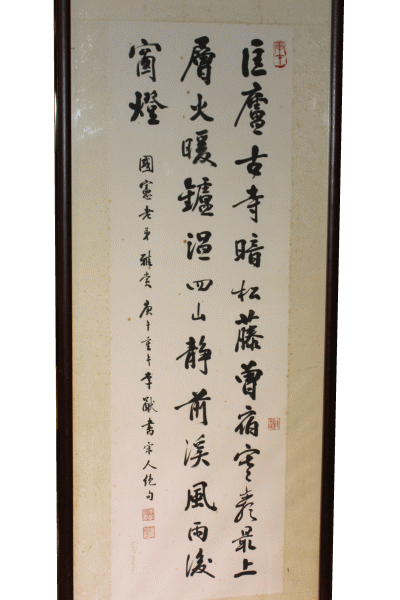 匡廬古寺暗松藤曾宿寒巖最上
層火暖鑪温四山靜前溪風雨後
窗燈
國憲老弟雅賞 庚午重午李猷書宋人絕句